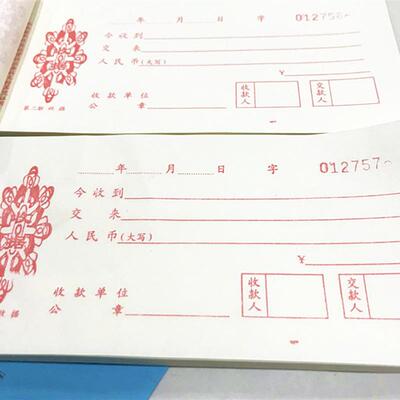 年 月 日 字 012756
今收到
交 来
人民币(大写)
¥
收款单位
公 章
收款人
交款人
第二联 收据
年 月 日 字 012757
今收到
交 来
人民币(大写)
¥
收款单位
公 章
收款人
交款人
收据